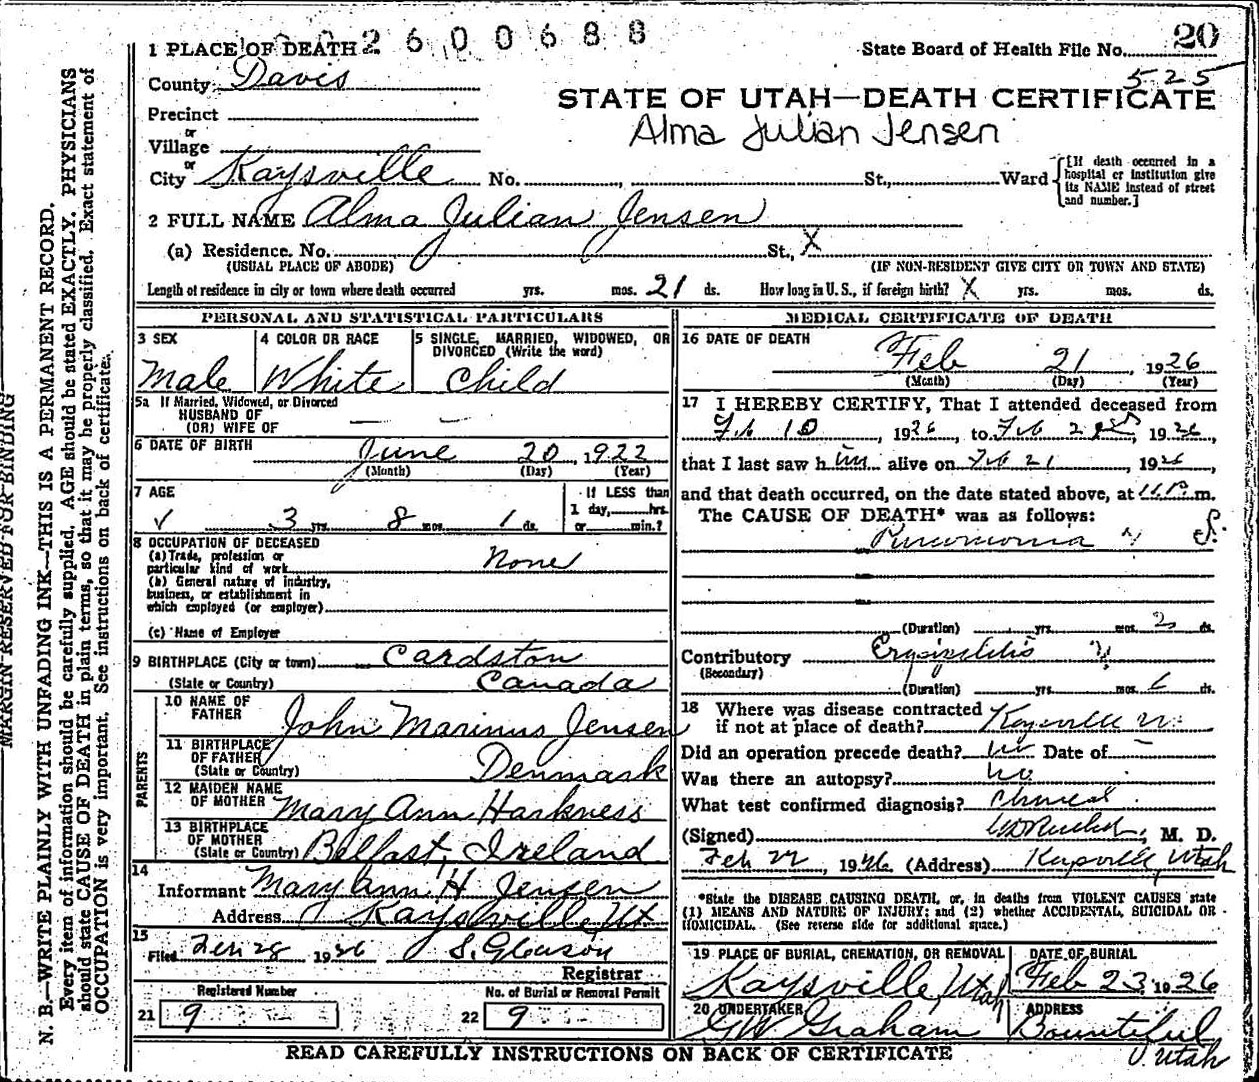 2600688
20
1 PLACE OF DEATH
State Board of Health File No.
525
County Davis
STATE OF UTAH—DEATH CERTIFICATE
Precinct
Alma Julian Jensen
or
Village
or
City Kaysville No. , St., Ward
[If death occurred in a hospital or institution give its NAME instead of street and number.]
2 FULL NAME Alma Julian Jensen
(a) Residence. No. St., X
(USUAL PLACE OF ABODE) (IF NON-RESIDENT GIVE CITY OR TOWN AND STATE)
Length of residence in city or town where death occurred yrs. mos. 21 ds. How long in U. S., if foreign birth? X yrs. mos. ds.
PERSONAL AND STATISTICAL PARTICULARS
3 SEX
Male
4 COLOR OR RACE
White
5 SINGLE, MARRIED, WIDOWED, OR DIVORCED (Write the word)
Child
5a If Married, Widowed, or Divorced
HUSBAND OF
(OR) WIFE OF — —
6 DATE OF BIRTH June 20, 1922
(Month) (Day) (Year)
7 AGE
✓ 3 yrs. 8 mos. 1 ds.
If LESS than
1 day, hrs.
or min.?
8 OCCUPATION OF DECEASED
(a) Trade, profession or
particular kind of work None
(b) General nature of industry,
business, or establishment in
which employed (or employer)
(c) Name of Employer
9 BIRTHPLACE (City or town) Cardston
(State or Country) Canada
PARENTS
10 NAME OF
FATHER John Marinus Jensen
11 BIRTHPLACE
OF FATHER
(State or Country) Denmark
12 MAIDEN NAME
OF MOTHER Mary Ann Harkness
13 BIRTHPLACE
OF MOTHER
(State or Country) Belfast, Ireland
14
Informant Mary Ann H Jensen
Address Kaysville Ut
15
Filed 28 1926 S. Gleason
Registrar
Registered Number
21 9
No. of Burial or Removal Permit
22 9
MEDICAL CERTIFICATE OF DEATH
16 DATE OF DEATH
Feb 21, 1926
(Month) (Day) (Year)
17 I HEREBY CERTIFY, That I attended deceased from
Feb 10, 1926, to Feb, 1926,
that I last saw him alive on Feb 21, 1926,
and that death occurred, on the date stated above, at 11 P.m.
The CAUSE OF DEATH* was as follows:
Pneumonia
(Duration) yrs. mos. 2 ds.
Contributory
(Secondary)
(Duration) yrs. mos. ds.
18 Where was disease contracted
if not at place of death? Kaysville
Did an operation precede death? no Date of —
Was there an autopsy? no
What test confirmed diagnosis? Clinical
(Signed) , M. D.
Feb 22, 1926. (Address) Kaysville, Utah
*State the DISEASE CAUSING DEATH, or, in deaths from VIOLENT CAUSES state
(1) MEANS AND NATURE OF INJURY; and (2) whether ACCIDENTAL, SUICIDAL OR
HOMICIDAL. (See reverse side for additional space.)
19 PLACE OF BURIAL, CREMATION, OR REMOVAL
Kaysville, Utah
DATE OF BURIAL
Feb 23 1926
20 UNDERTAKER
GW Graham
ADDRESS
Bountiful
Utah
READ CAREFULLY INSTRUCTIONS ON BACK OF CERTIFICATE
MARGIN RESERVED FOR BINDING
N. B.—WRITE PLAINLY WITH UNFADING INK—THIS IS A PERMANENT RECORD.
Every item of information should be carefully supplied. AGE should be stated EXACTLY. PHYSICIANS
should state CAUSE OF DEATH in plain terms, so that it may be properly classified. Exact statement of
OCCUPATION is very important. See instructions on back of certificate.